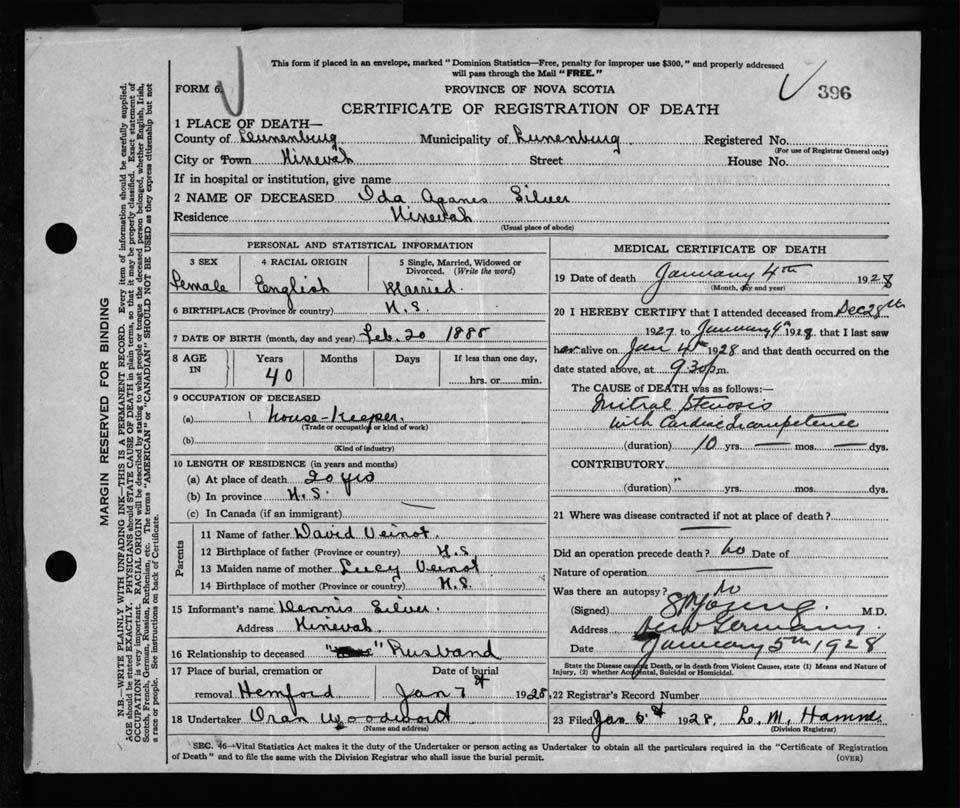 This form if placed in an envelope, marked "Dominion Statistics—Free, penalty for improper use $300," and properly addressed
will pass through the Mail "FREE."
FORM 6.
PROVINCE OF NOVA SCOTIA
396
CERTIFICATE OF REGISTRATION OF DEATH
1 PLACE OF DEATH—
County of Lunenburg Municipality of Lunenburg Registered No.
(For use of Registrar General only)
City or Town Ninevah Street House No.
If in hospital or institution, give name
2 NAME OF DECEASED Ida Aganes Silver
Residence Ninevah
(Usual place of abode)
MARGIN RESERVED FOR BINDING
N.B.—WRITE PLAINLY WITH UNFADING INK—THIS IS A PERMANENT RECORD. Every item of information should be carefully supplied.
AGE should be stated EXACTLY. PHYSICIANS should STATE CAUSE OF DEATH in plain terms, so that it may be properly classified. Exact statement of
OCCUPATION is very important. RACIAL ORIGIN will be described by stating to what people or tongue the deceased person belonged, whether English, Irish,
Scotch, French, German, Russian, Ruthenian, etc. The terms "AMERICAN" or "CANADIAN" SHOULD NOT BE USED as they express citizenship but not
a race or people. See instructions on back of Certificate.
PERSONAL AND STATISTICAL INFORMATION
3 SEX
Female
4 RACIAL ORIGIN
English
5 Single, Married, Widowed or
Divorced. (Write the word)
Married.
6 BIRTHPLACE (Province or country) N.S.
7 DATE OF BIRTH (month, day and year) Feb. 20 1888
8 AGE
IN
Years
40
Months
Days
If less than one day,
hrs. or min.
9 OCCUPATION OF DECEASED
(a) House-Keeper.
(Trade or occupation or kind of work)
(b)
(Kind of industry)
10 LENGTH OF RESIDENCE (in years and months)
(a) At place of death 20 yrs
(b) In province N.S.
(c) In Canada (if an immigrant)
Parents
11 Name of father David Veinot.
12 Birthplace of father (Province or country) N.S
13 Maiden name of mother Lucy Veinot
14 Birthplace of mother (Province or country) N.S.
15 Informant's name Dennis Silver.
Address Ninevah.
16 Relationship to deceased " " Husband
17 Place of burial, cremation or Date of burial
removal Hemford Jan 7 st 1928.
18 Undertaker Oran Woodwort
(Name and address)
MEDICAL CERTIFICATE OF DEATH
19 Date of death January 4th 1928
(Month, day and year)
20 I HEREBY CERTIFY that I attended deceased from Dec 28th
1927 to January 4th 1928, that I last saw
her alive on Jan 4th 1928 and that death occurred on the
date stated above, at 9.30 p.m.
The CAUSE of DEATH was as follows:—
Mitral Stenosis
with Cardiac Incompetence
(duration) 10 yrs. — mos. — dys.
CONTRIBUTORY
(duration) " yrs. mos. dys.
21 Where was disease contracted if not at place of death?
Did an operation precede death? No Date of
Nature of operation
Was there an autopsy? No
(Signed) Young. M.D.
Address New Germany
Date January 5th 1928
State the Disease causing Death, or in death from Violent Causes, state (1) Means and Nature of
Injury, (2) whether Accidental, Suicidal or Homicidal.
22 Registrar's Record Number
23 Filed Jan 6 st 1928, L. M. Hamm.
(Division Registrar)
SEC. 46—Vital Statistics Act makes it the duty of the Undertaker or person acting as Undertaker to obtain all the particulars required in the "Certificate of Registration
of Death" and to file the same with the Division Registrar who shall issue the burial permit.
(OVER)